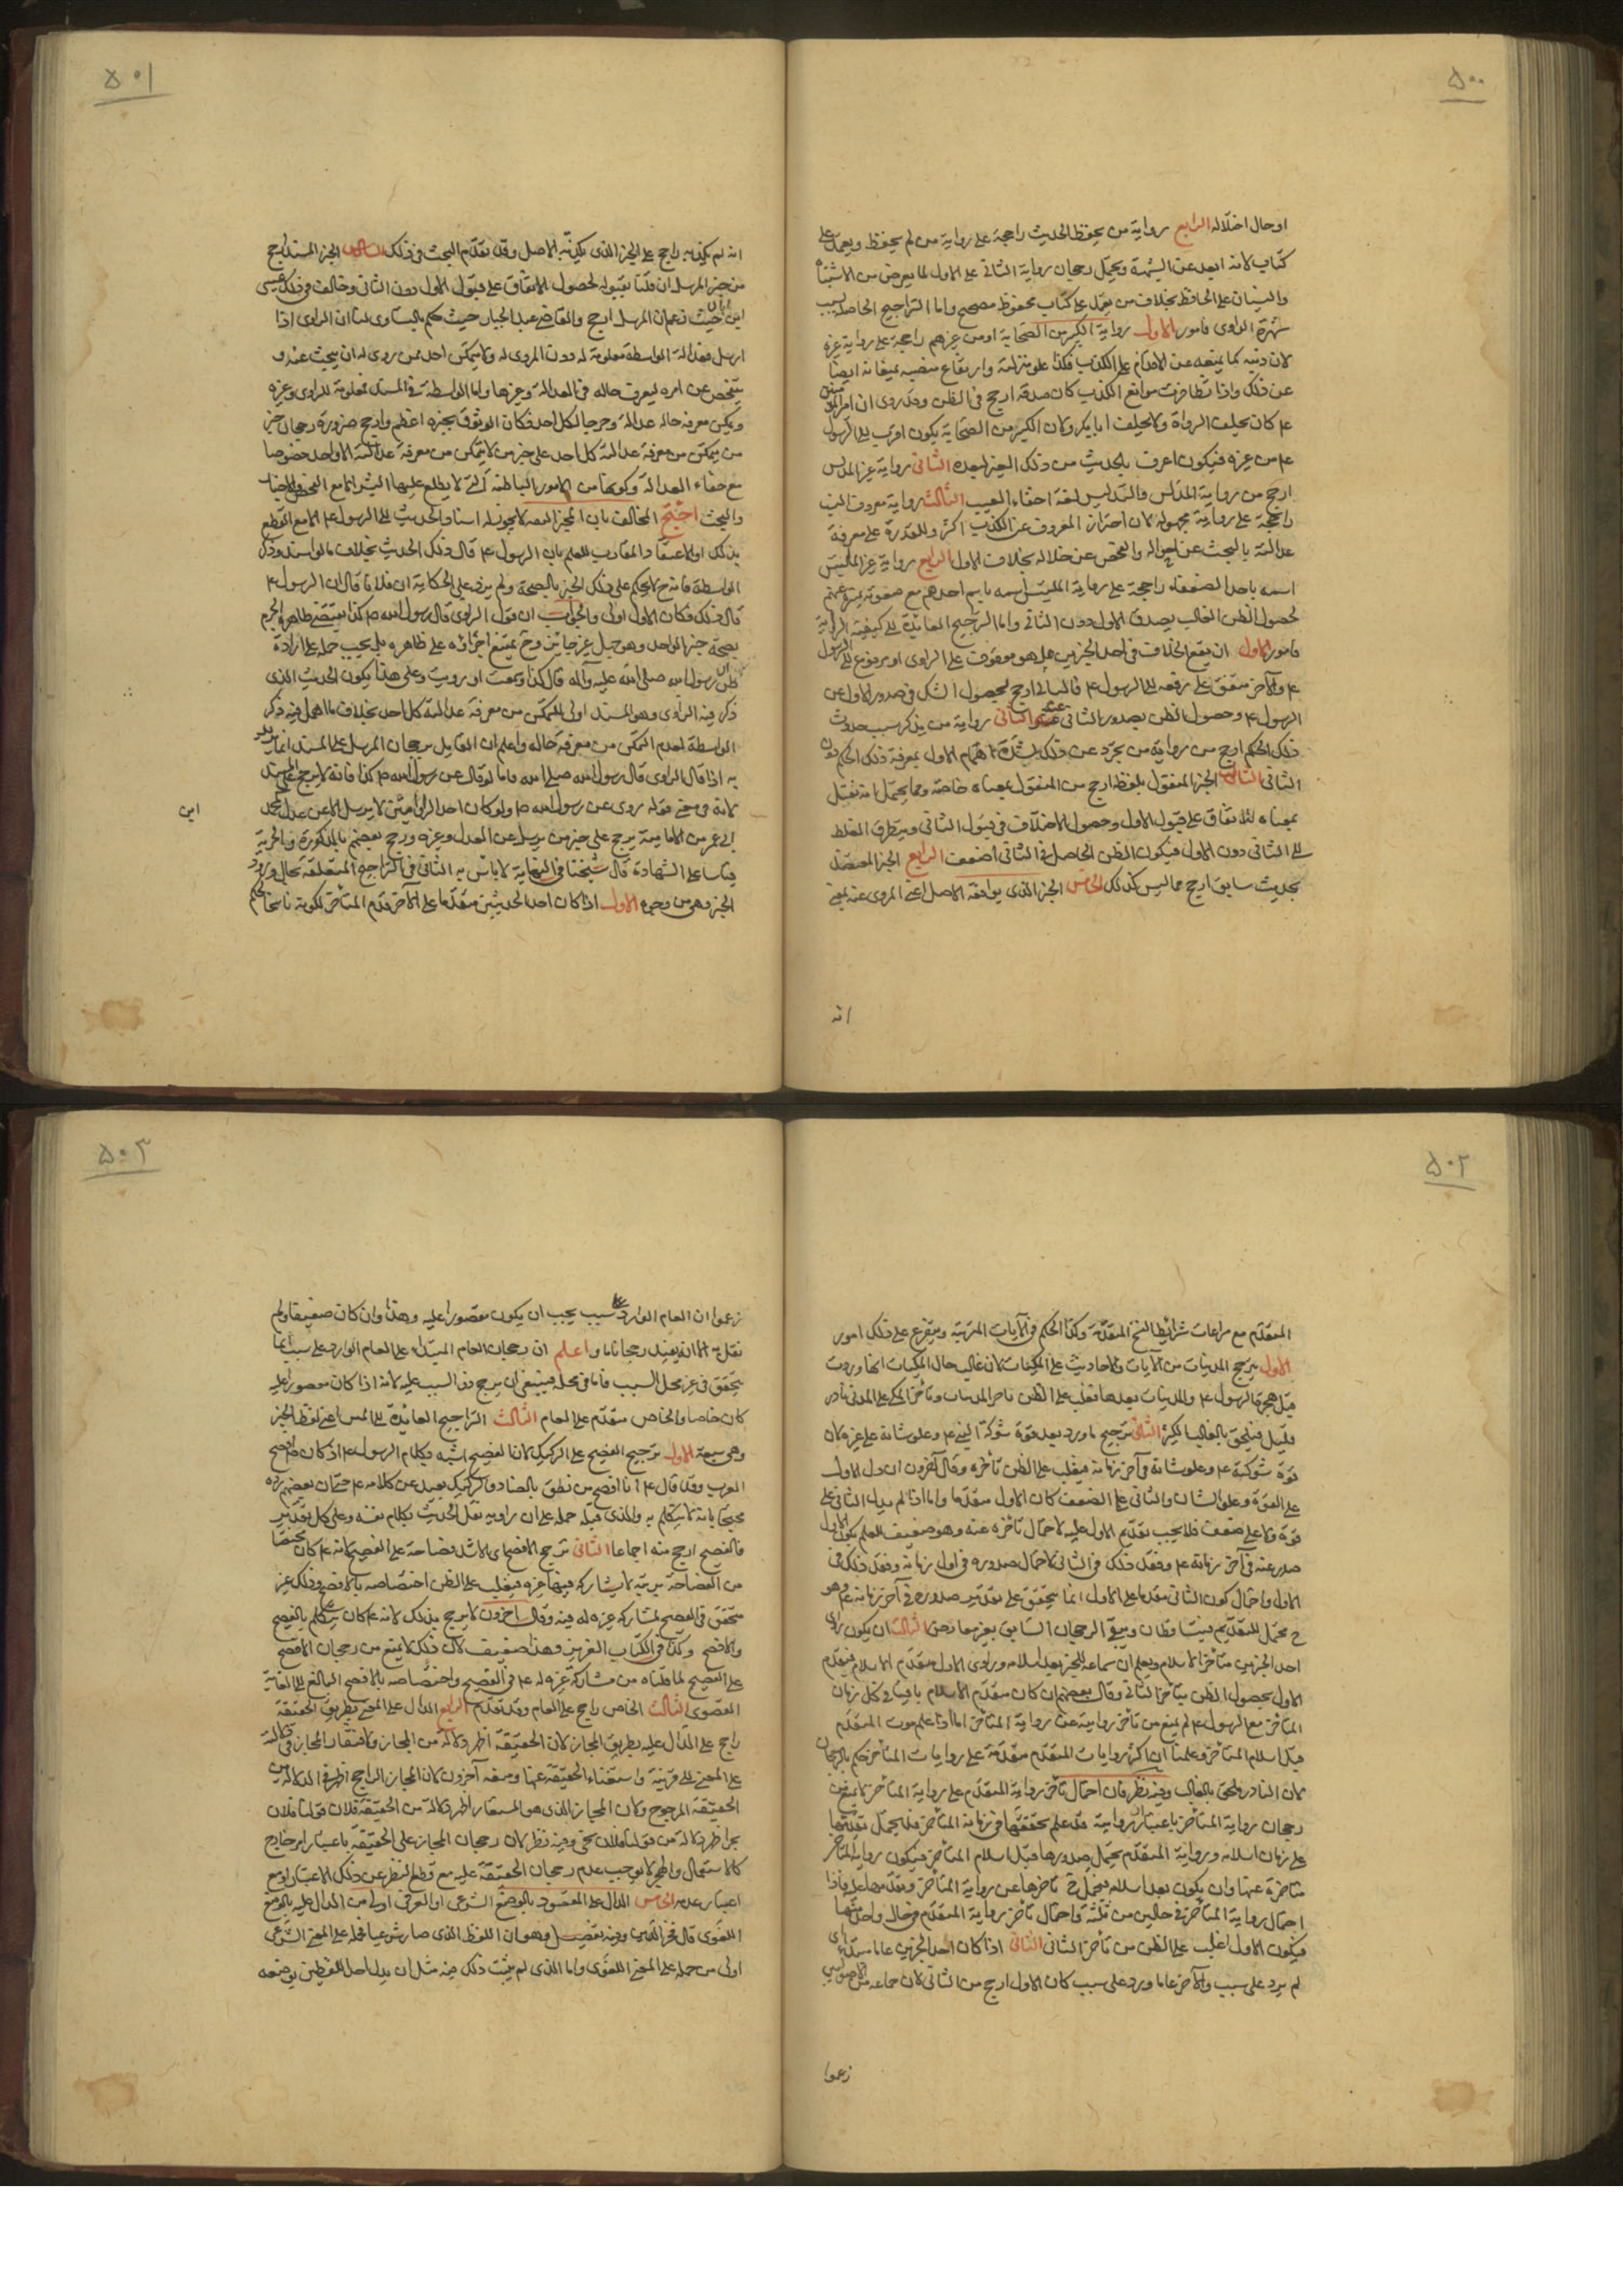 ٥٠٠
او حال اختلاله الرابع رواية من يحفظ الحديث راجحة على رواية من لم يحفظ ويعمل على
كتاب لانه ابعد عن الشبهة ويحتمل رجحان رواية الثانى على الاول لما يعرض من الاشتباه
والنسيان على الحافظ بخلاف من يعمل على كتاب محفوظ مصحح واما التراجيح الحاصلة بسبب
شهرة الراوى فامور الاول رواية الكبير من الصحابة او من غيرهم راجحة على رواية غيره
لان دينه كما يمنعه عن الاقدام على الكذب فكذا علو منزلته وارتفاع منصبه يمنعانه ايضا
عن ذلك واذا تظافرت موانع الكذب كان صدقه ارجح فى الظن وقد روى ان امير المؤمنين
ع م كان يحلف الرواة ولا يحلف ابا بكر ولان الكبير من الصحابة يكون اقرب الى الرسول
ع م من غيره فيكون اعرف بالحديث من ذلك الغير لبعده الثانى رواية غير المدلس
ارجح من رواية المدلس والتدليس لغة اخفاء العيب الثالث رواية معروف النسب
راجحة على رواية مجهوله لان احتراز المعروف عن الكذب اكثر وللقدرة على معرفة
عدالته بالبحث عن احواله والفحص عن خلاله بخلاف الاول الرابع رواية غير الملتبس
اسمه باحد الضعفاء راجحة على رواية الملتبس اسمه باسم احدهم مع صعوبة تميزه عنهم
لحصول الظن الغالب بصدق الاول دون الثانى واما التراجيح العائدة الى كيفية الرواية
فامور الاول ان يقع الخلاف فى احد الخبرين هل هو موقوف على الراوى او مرفوع الى الرسول
ع م والآخر متفق على رفعه الى الرسول ع م فالثانى ارجح لحصول الشك فى صدور الاول عن
الرسول ع م وحصول الظن بصدور الثانى عنه الثانى رواية من يذكر سبب حدوث
ذلك الحكم ارجح من رواية من تجرد عن ذلك لشدة اهتمام الاول بمعرفة ذلك الحكم دون
الثانى الثالث الخبر المنقول بلفظه ارجح من المنقول بمعناه خاصة ومما يحتمل انه نقل
بمعناه للاتفاق على قبول الاول وحصول الاختلاف فى قبول الثانى ويتطرق الغلط
الى الثانى دون الاول فيكون الظن الحاصل فى الثانى اضعف الرابع الخبر المعتضد
بحديث سابق ارجح مما ليس كذلك الخامس الخبر الذى يوافقه الاصل اعنى المروى عنه بمعنى
انه
٥٠١
انه لم يكذبه راجح على الخبر الذى يكذبه الاصل وقد تقدم البحث فى ذلك السادس الخبر المسند ارجح
من خبر المرسل ان قلنا بقبوله لحصول الاتفاق على قبول الاول دون الثانى وخالف فى ذلك عيسى
ابن ابان حيث زعم ان المرسل ارجح والقاضى عبد الجبار حيث حكم بالتساوى لنا ان الراوى اذا
ارسل فعدالة الواسطة معلومة له دون المروى له ولا يتمكن احد ممن روى له ان يبحث عنه و
يتفحص عن امره ليعرف حاله فى العدالة وغيرها واما الواسطة فى المسند فمعلومة للراوى وغيره
ويمكن معرفة حاله عدالة وجرحا لكل احد فكان الوثوق بخبره اعظم وارجح ضرورة رجحان خبر
من يتمكن من معرفة عدالته كل احد على خبر من لا يتمكن من معرفة عدالته الا واحد خصوصا
مع خفاء العدالة وكونها من الامور الباطنة التى لا يطلع عليها البشر الا مع الفحص والاختبار
والبحث احتج المخالف بان المخبر الثقة لا يجوز له اسناد الحديث الى الرسول ع م الا مع القطع
بذلك او الاعتقاد المقارب للعلم بان الرسول ع م قال ذلك الحديث بخلاف ما لو اسند وذكر
الواسطة فانه ح لا يحكم على ذلك الخبر بالصحة ولم يزد على الحكاية ان فلانا قال ان الرسول ع م
قال ذلك فكان الاول اولى والجواب ان قول الراوى قال رسول الله ص كذا يقتضى ظاهره الجزم
بصحة خبر الواحد وهو جهل غير جائز وح يمتنع اجراؤه على ظاهره بل يجب حمله على ارادة
ظن ان رسول الله صلى الله عليه وآله قال كذا او سمعت او رويت وعلى هذا يكون الحديث الذى
ذكر فيه الراوى وهو المسند اولى للتمكن من معرفة عدالته كل احد بخلاف ما اهمل فيه ذكر
الواسطة لعدم التمكن من معرفة حاله واعلم ان القايل برجحان المرسل على المسند انما يقول
به اذا قال الراوى قال رسول الله صلى الله واما لو قال عن رسول الله ص كذا فانه لا يرجح على المسند
لانه فى معنى قوله روى عن رسول الله ص ولو كان احد الراويين لا يرسل الا عن عدل كمحمد
ابن
ابى عمير من الامامية يرجح على خبر من يرسل عن العدل وغيره ورجح بعضهم بالذكورة والحرية
قياسا على الشهادة قال شيخنا فى النهاية لا باس به الثانى فى التراجيح المتعلقة بحال ورود
الخبر وهى من وجوه الاول اذا كان احد الحديثين متقدما على الآخر قدم المتأخر لكونه ناسخا لحكم
٥٠٢
المتقدم مع مراعات شرائط النسخ المتقدمة وكذا الحكم فى الآيات المرتبة ويتفرع على ذلك امور
الاول ترجح المدنيات من الآيات والاحاديث على المكيات لان غالب حال المكيات انها وردت
قبل هجرة الرسول ع م والمدنيات بعدها فغلب على الظن تاخر المدنيات وتأخر المكى على المدنى نادر
قليل فيلحق بالغالب الكثير الثانى ترجح ما ورد بعد قوة شوكة النبى ع م وعلو شانه على غيره لان
قوة شوكته ع م وعلو شانه فى آخر زمانه فيغلب على الظن تأخره وقال آخرون ان دل الاول
على القوة وعلو الشان والثانى على الضعف كان الاول متقدما واما اذا لم يدل الثانى على
قوة ولا على ضعف فلا يجب تقديم الاول عليه لاحتمال تأخره عنه وهو ضعيف للعلم بكون الاول
صدر عنه فى آخر زمانه ع م وفقد ذلك فى الثانى لاحتمال صدوره فى اول زمانه وفقد ذلك فى
الاول واحتمال كون الثانى مقدما على الاول انما يتحقق على تقدير صدوره فى آخر زمانه ع م وهو
ح محتمل للتقديم فيتساقطان ويبقى الرجحان السابق بغير معارض الثالث ان يكون راوى
احد الخبرين متأخر الاسلام ويعلم ان سماعه للخبر بعد اسلامه وراوى الاول متقدم الاسلام فيقدم
الاول لحصول الظن بتأخر الثانى وقال بعضهم ان كان متقدم الاسلام باقيا فى كل زمان
المتأخر مع الرسول ع م لم يمنع من تأخر روايته عن رواية المتأخر اما اذا علم موت المتقدم
قبل اسلام المتأخر وعلمنا ان اكثر روايات المتقدم متقدمة على روايات المتأخر حكم بالرجحان
لان النادر ملحق بالغالب وفيه نظر فان احتمال تأخر رواية المتقدم على رواية المتأخر لا يمنع من
رجحان رواية المتأخر باعتبار ان روايته قد علم تحققها فى زمانه المتأخر فلا يحتمل تقدمها
على زمان اسلامه ورواية المتقدم يحتمل صدورها قبل اسلام المتأخر فيكون رواية المتأخر
متاخرة عنها وان يكون بعد اسلامه فيحتمل ح تاخرها عن رواية المتأخر وتقدمها عليه فاذا
احتمال رواية المتأخر فى حالين من ثلثة واحتمال تأخر رواية المتقدم فى حال واحد منها
فيكون الاول اغلب على الظن من تأخر الثانى الثانى اذا كان احد الخبرين عاما مبتدء اى
لم يرد على سبب والآخر عاما ورد على سبب كان الاول ارجح من الثانى لان جماعة من الاصوليين
زعموا
٥٠٣
زعموا ان العام الوارد على سبب يجب ان يكون مقصورا عليه وهذا وان كان ضعيفا ولم
نقل به الا انه يفيد رجحانا ما واعلم ان رجحان العام المبتداء على العام الوارد على سبب انما
يتحقق فى غير محل السبب فاما فى محله فينبغى ان يرجح ذو السبب عليه لانه اذا كان مقصورا عليه
كان خاصا والخاص متقدم على العام الثالث التراجيح العائدة الى المتن اعنى لفظ الخبر
وهى سبعة الاول ترجيح الفصيح على الركيك لان الفصيح اشبه بكلام الرسول ع م اذ كان افصح
العرب وقد قال ع م انا افصح من نطق بالضاد والركيك بعيد عن كلامه ع م حتى ان بعضهم رده
محتجا بانه لا يتكلم به والذى قبله حمله على ان راويه نقل الحديث بكلام نفسه وعلى كل تقدير
فالفصيح ارجح منه اجماعا الثانى ترجيح الافصح اى الاشد فصاحة على الفصيح لانه ع م كان مختصا
من الفصاحة بمرتبة لا يشاركه فيها غيره فيغلب على الظن اختصاصه بالافصح وذلك غير
متحقق فى الفصيح لمشاركة غيره له فيه وقال آخرون لا يرجح بذلك لانه ع م كان يتكلم بالفصيح
والافصح وكذا فى الكتاب العزيز وهذا ضعيف لان ذلك لا يمنع من رجحان الافصح
على الفصيح لما قلناه من مشاركة غيره له ع م فى الفصيح واختصاصه بالافصح البالغ الى الغاية
القصوى الثالث الخاص راجح على العام وقد تقدم الرابع الدال على المعنى بطريق الحقيقة
راجح على الدال عليه بطريق المجاز لان الحقيقة اظهر دلالة من المجاز ولافتقار المجاز فى دلالته
على المعنى الى قرينة واستغناء الحقيقة عنها ومنعه آخرون لان المجاز الراجح اظهر فى الدلالة من
الحقيقة المرجوح ولان المجاز الذى هو المستعار اظهر دلالة من الحقيقة فلان قولنا فلان
بحر اظهر دلالة من قولنا فلان سخى وفيه نظر لان رجحان المجاز على الحقيقة باعتبار امر خارج
كالاستعمال والظهور لا يوجب عدم رجحان الحقيقة عليه مع قطع النظر عن ذلك الاعتبار او مع
اعتبار عدمه الخامس الدال على المقصود بالوضع الشرعى او العرفى اولى من الدال عليه بالوضع
اللغوى قال فخر الدين وفيه تفصيل وهو ان اللفظ الذى صار شرعيا فحمله على المعنى الشرعى
اولى من حمله على المعنى اللغوى واما الذى لم يثبت ذلك فيه مثل ان يدل احد اللفظين بوضعه